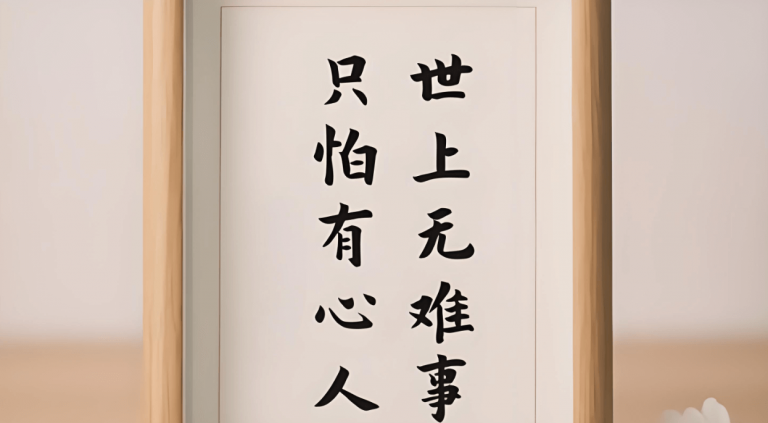 世上无难事
只怕有心人